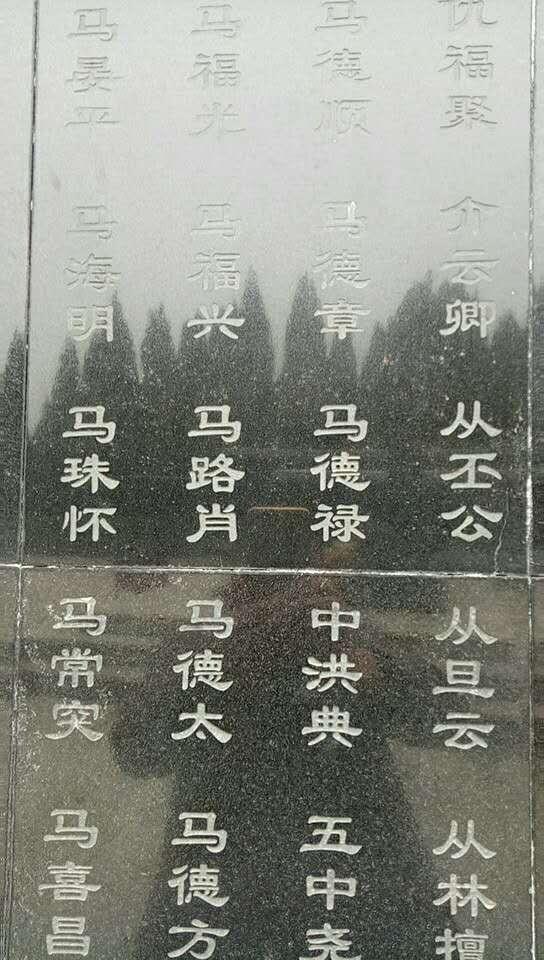 马晏平
马海明
马珠怀
马常突
马喜昌
马福光
马福兴
马路肖
马德太
马德方
马德顺
马德章
马德禄
中洪典
五中尧
仇福聚
介云卿
从丕公
从旦云
从林